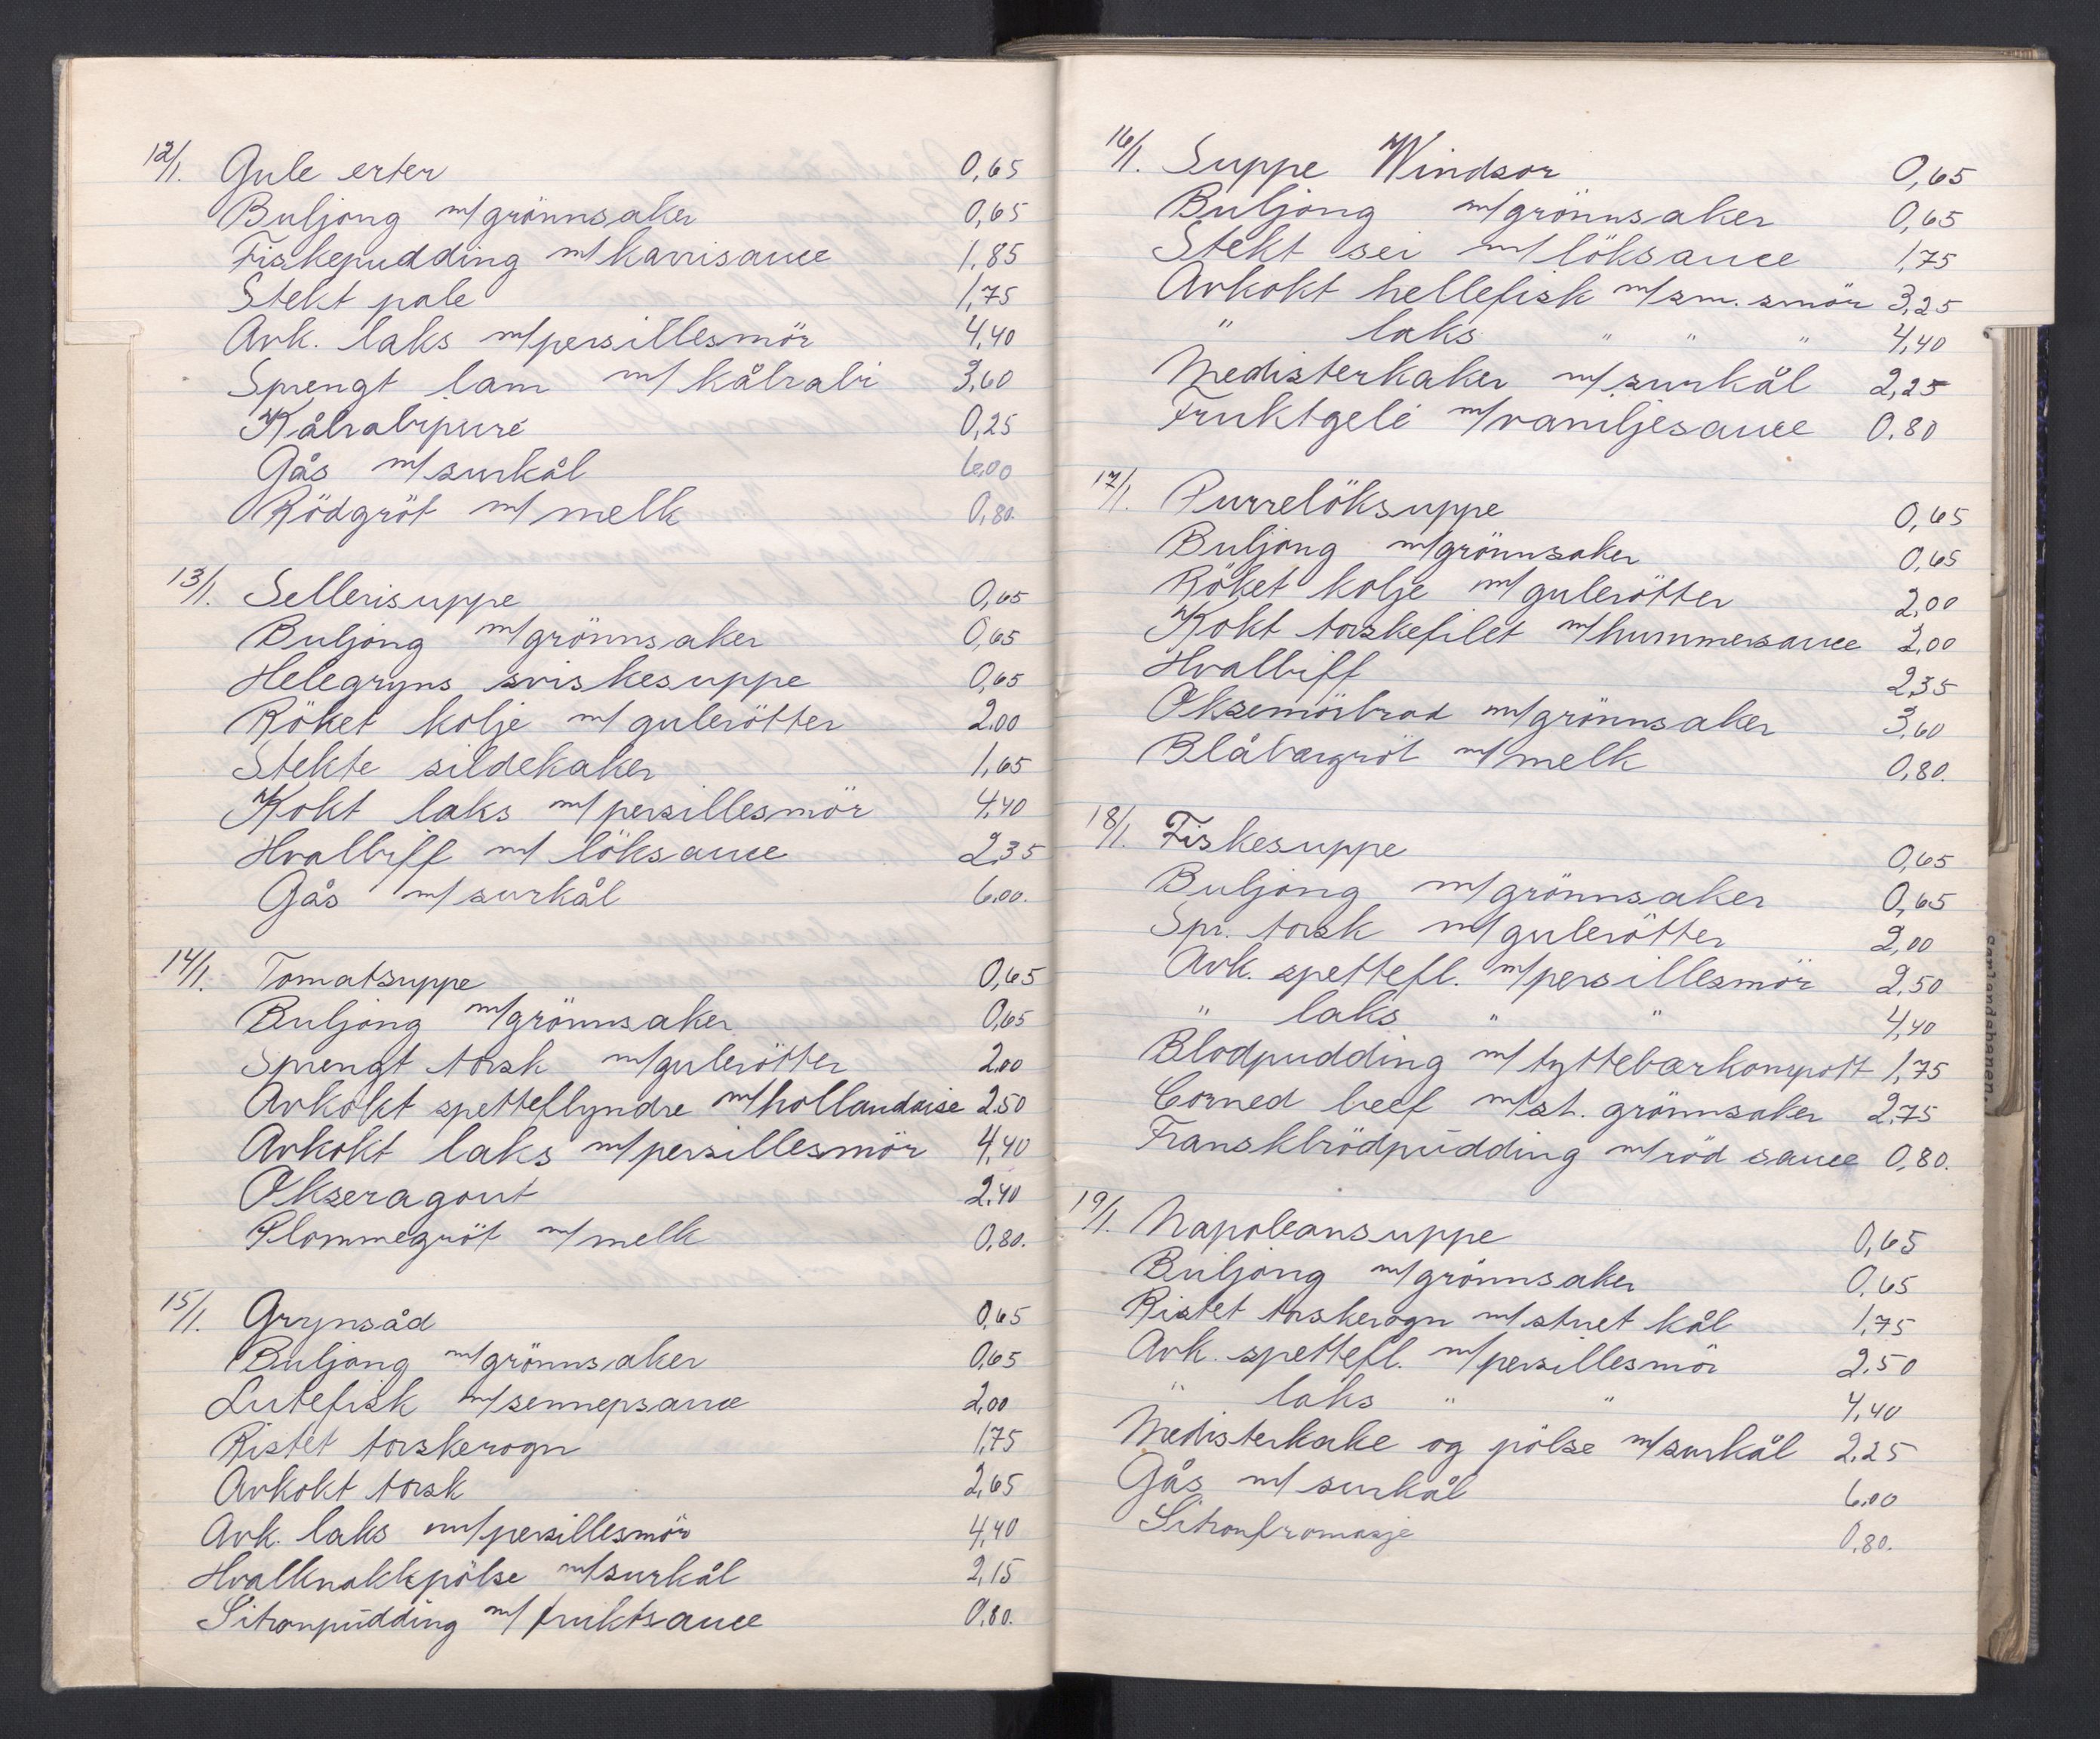 12/1. Gule erter 0,65
Buljong m/grönnsaker 0,65
Fiskepudding m/karrisauce 1,85
Stekt pale 1,75
Avk. laks m/persillesmör 4,40
Sprengt lam m/ kålrabi 3,60
Kålrabipuré 0,25
Gås m/surkål 6,00
Rödgröt m/melk 0,80.
13/1. Sellerisuppe 0,65
Buljong m/grönnsaker 0,65
Helegryns sviskesuppe 0,65
Röket kolje m/gulerötter 2.00
Stekte sildekaker 1,65
Kokt laks m/persillesmör 4,40
Hvalbiff m/ löksauce 2,35
Gås m/surkål 6,00.
14/1. Tomatsuppe 0,65
Buljong m/grönnsaker 0,65
Sprengt torsk m/gulerötter 2,00
Avkokt spetteflyndre m/hollandaise 2.50
Avkokt laks m/persillesmör 4,40
Okseragout 2.40
Plommegröt m/melk 0,80.
15/1. Grynsåd 0,65
Buljong m/grönnsaker 0,65
Lutefisk m/sennepsauce 2,00
Ristet torskerogn 1,75
Avkokt torsk 2,65
Avk. laks m/persillesmör 4,40
Hvalknakkpölse m/surkål 2,15
Sitronpudding m/ fruktsauce 0,80.
16/1. Suppe Windsor 0,65
Buljong m/grönnsaker 0,65
Stekt sei m/löksauce 1,75
Avkokt hellefisk m/sm. smör 3,25
" laks " " " 4,40
Medisterkaker m/surkål 2,25
Fruktgelé m/vaniljesauce 0.80
17/1. Purrelöksuppe 0,65
Buljong m/grönnsaker 0,65
Röket kolje m/gulerötter 2,00
Kokt torskefilet m/hummersauce 2,00
Hvalbiff 2,35
Oksemörbrad m/grönnsaker 3,60
Blåbærgröt m/melk 0,80.
18/1. Fiskesuppe 0,65
Buljong m/grönnsaker 0,65
Spr. torsk m/gulerötter 2,00
Avk. spettefl. m/persillesmör 2,50
" laks " " 4,40
Blodpudding m/tyttebærkompott 1,75
Corned beef m/st. grönnsaker 2,75
Franskbrödpudding m/röd sauce 0,80.
19/1. Napoleonsuppe 0,65
Buljong m/grönnsaker 0,65
Ristet torskerogn m/stuet kål 1,75
Avk. spettefl. m/persillesmör 2.50
" laks " " 4,40
Medisterkake og pölse m/surkål 2,25
Gås m/surkål 6,00
Sitronfromasje 0,80.